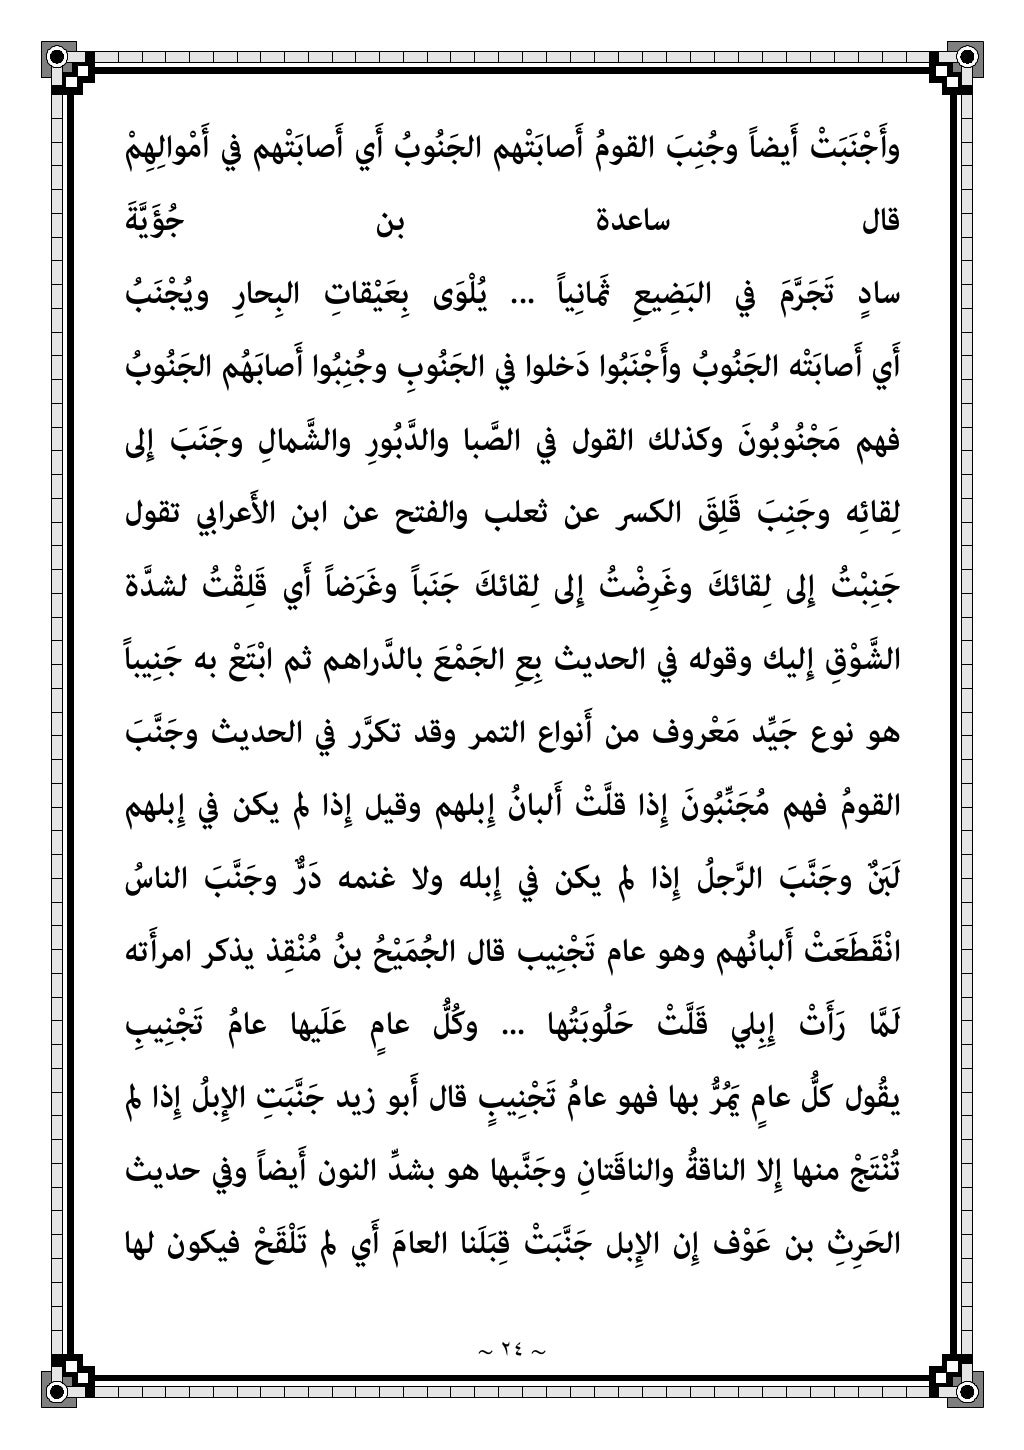 وأَجْنَبَتْ أَيضاً وجُنِبَ القومُ أَصابَتْهم الجَنُوبُ أَي أَصابَتْهم في أَمْوالِهِمْ
قال ساعدة بن جُؤَيَّةَ
سادٍ تَجَرَّمَ في البَضِيعِ ثَمانِياً ... يُلْوَى بِعَيْقاتِ البِحارِ ويُجْنَبُ
أَي أَصابَتْه الجَنُوبُ وأَجْنَبُوا دَخلوا في الجَنُوبِ وجُنِبُوا أَصابَهُم الجَنُوبُ
فهم مَجْنُوبُونَ وكذلك القول في الصَّبا والدَّبُورِ والشَّمالِ وجَنَبَ إِلى
لِقائِه وجَنِبَ قَلِقَ الكسر عن ثعلب والفتح عن ابن الأَعرابي تقول
جَنِبْتُ إِلى لِقائكَ وغَرِضْتُ إِلى لِقائكَ جَنَباً وغَرَضاً أَي قَلِقْتُ لشدَّة
الشَّوْقِ إِليك وقوله في الحديث بِعِ الجَمْعَ بالدَّراهم ثم ابْتَعْ به جَنِيباً
هو نوع جَيِّد مَعْروف من أَنواع التمر وقد تكرَّر في الحديث وجَنَّبَ
القومُ فهم مُجَنِّبُونَ إِذا قلَّتْ أَلبانُ إِبلهم وقيل إِذا لم يكن في إِبلهم
لَبَنٌ وجَنَّبَ الرَّجلُ إِذا لم يكن في إِبله ولا غنمه دَرٌّ وجَنَّبَ الناسُ
انْقَطَعَتْ أَلبانُهم وهو عام تَجْنِيب قال الجُمَيْحُ بنُ مُنْقِذ يذكر امرأَته
لَمَّا رَأَتْ إِبِلي قَلَّتْ حَلُوبَتُها ... وكُلُّ عامٍ عَلَيها عامُ تَجْنِيبِ
يقُول كلُّ عامٍ يَمُرُّ بها فهو عامُ تَجْنِيبٍ قال أَبو زيد جَنَّبَتِ الإِبلُ إِذا لم
تُنْتَجْ منها إِلا الناقةُ والناقَتانِ وجَنَّبها هو بشدِّ النون أَيضاً وفي حديث
الحَرِثِ بن عَوْف إِن الإِبل جَنَّبَتْ قِبَلَنا العامَ أَي لم تَلْقَحْ فيكون لها
~ ٢٤ ~